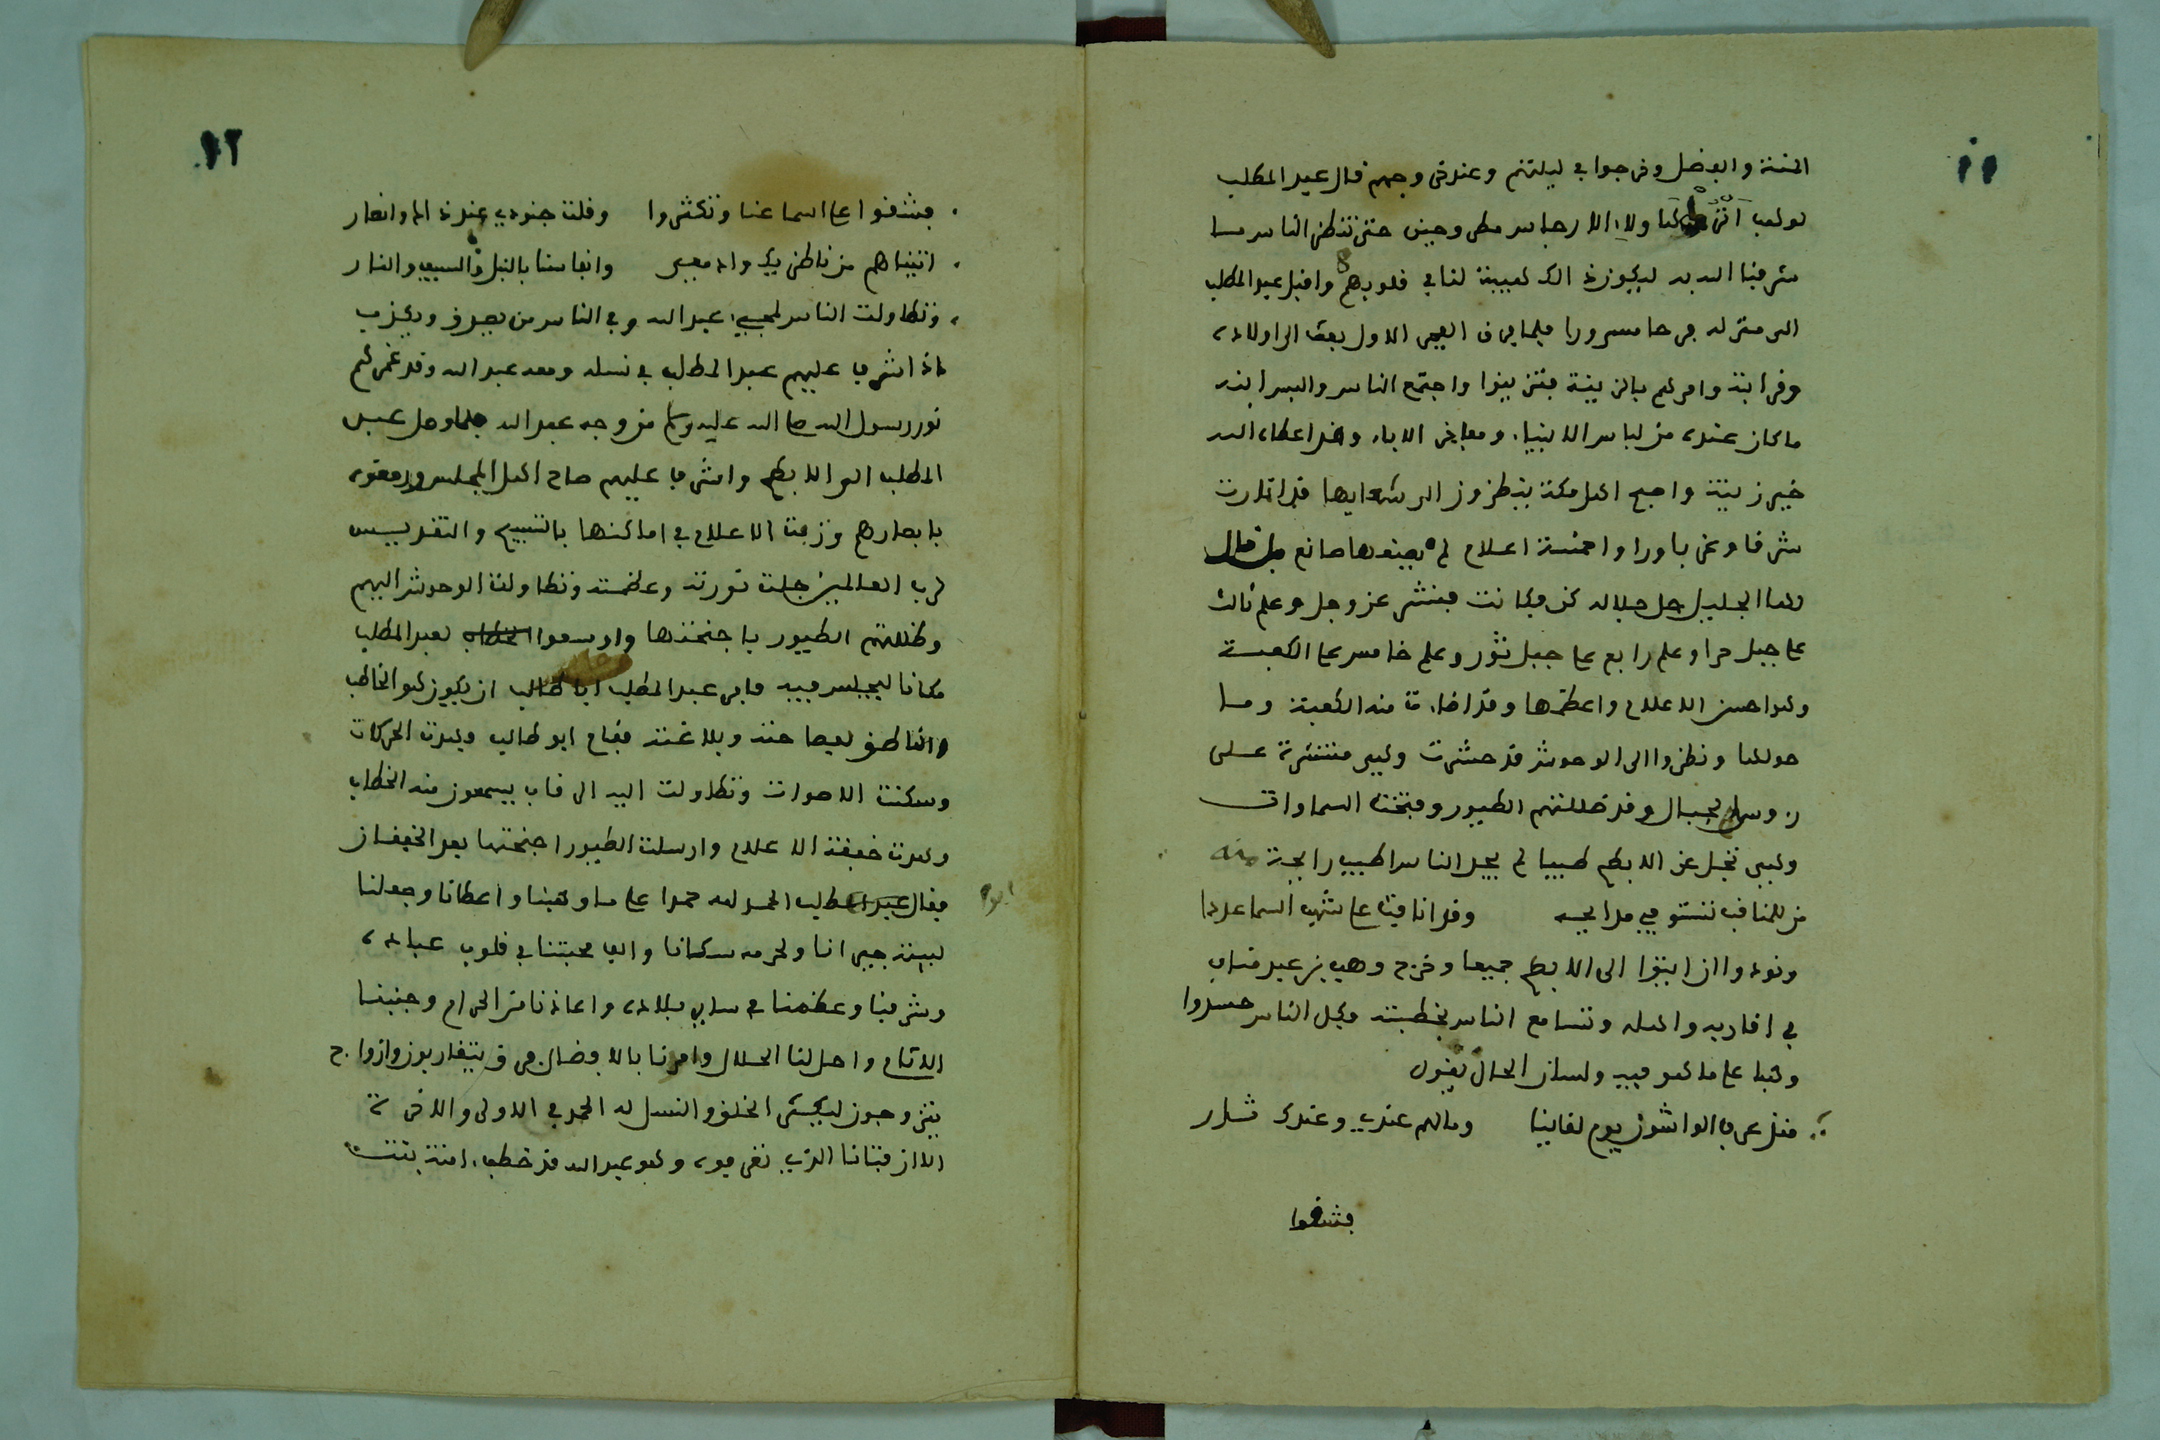 ١١
المنة والفضل وخرجوا في ليلتهم وعند خروجهم قال عبد المطلب
شرفنا الله به ليكون ذلك لهيبة لنا في قلوبهم واقبل عبد المطلب
الى منزله فرحا مسرورا فلما برق الفجر الاول بعث الى اولاده
وقرابته وامرهم بالزينة فتزينوا واجتمع الناس والبس ابنه
ما كان عنده من لباس الانبياء ومفاخر الاباء وقد اعطاه الله
خير زينة واصبح اهل مكة ينظرون الى شعابها قد انارت
شرفا وغربا وراوا خمسة اعلام لم يصنعها صانع بل قال
لها الجليل جل جلاله كن فكانت فنشر عز وجل وعلم ثالث
على جبل حرا وعلم رابع على جبل ثور وعلم خامس على الكعبة
وهو احسن الاعلام واعظمها وقد اضاءت منه الكعبة وما
حولها ونظروا الى الوحوش قد حشرت وهي منتشرة على
رءوس الجبال وقد ظللتهم الطيور وفتحت السماوات
وهبى تجل عن الابطح طيبا لم يجد الناس اطيب رايحة منه
من للمناقب تستوفي مدايحه وقد انافت على شهب السما عددا
ونودوا ان ابرزوا الى الابطح جميعا وخرج وهب بن عبد مناف
في اقاربه واهله وتسامع الناس بخطبته فكل الناس حسدوا
وهبا على ما هو فيه ولسان الحال يقول
فقل عرف الواشون يوم لقاينا ومالهم عندي وعندك ثار
فشنفوا
١٢
فشنفوا على اسماعنا وتكثروا وقلت جنودي عند ذاك وانصار
اتيناهم من ناظريك وادمعي وانفاسنا بالنبل والسيف والنار
وتطاولت الناس لمجيء عبد الله وفي الناس من يصدق ويكذب
اذ اشرف عليهم عبد المطلب في نسله ومعه عبد الله وقد غمرهم
نور رسول الله صلى الله عليه وسلم من وجه عبد الله فلما وصل عبد
المطلب الى الابطح واشرف عليهم صاح اهل المجلس ورمقوه
بابصارهم وزفت الاعلام في اماكنها بالتسبيح والتقديس
لرب العالمين جلت قدرته وعظمته وتطاولت الوحوش اليهم
وظللتهم الطيور باجنحتها واوسعوا لعبد المطلب
مكانا ليجلس فيه فامر عبد المطلب ابا طالب ان يكون هو الخاطب
والناطق لفصاحته وبلاغته فقام ابو طالب وهدت الحركات
وسكنت الاصوات وتطاولت اليه الرقاب يسمعون منه الخطاب
وهدت خفقة الاعلام وارسلت الطيور اجنحتها بعد الخفقان
فقال ابو طالب الحمد لله حمدا على ما وهبنا واعطانا وجعلنا
لبيته جيرانا ولحرمه سكانا والقى محبتنا في قلوب عباده
وشرفنا وعظمنا في ساير بلاده واعاذنا من الحرام وجنبنا
الاثام واحل لنا الحلال وامرنا بالافضال فرق يتقاربون وازواج
يتزوجون ليكثر الخلق والنسل له الحمد في الاولى والاخرة
الا ان فتانا الذي تعرفوه وهو عبد الله قد خطب امنة بنت